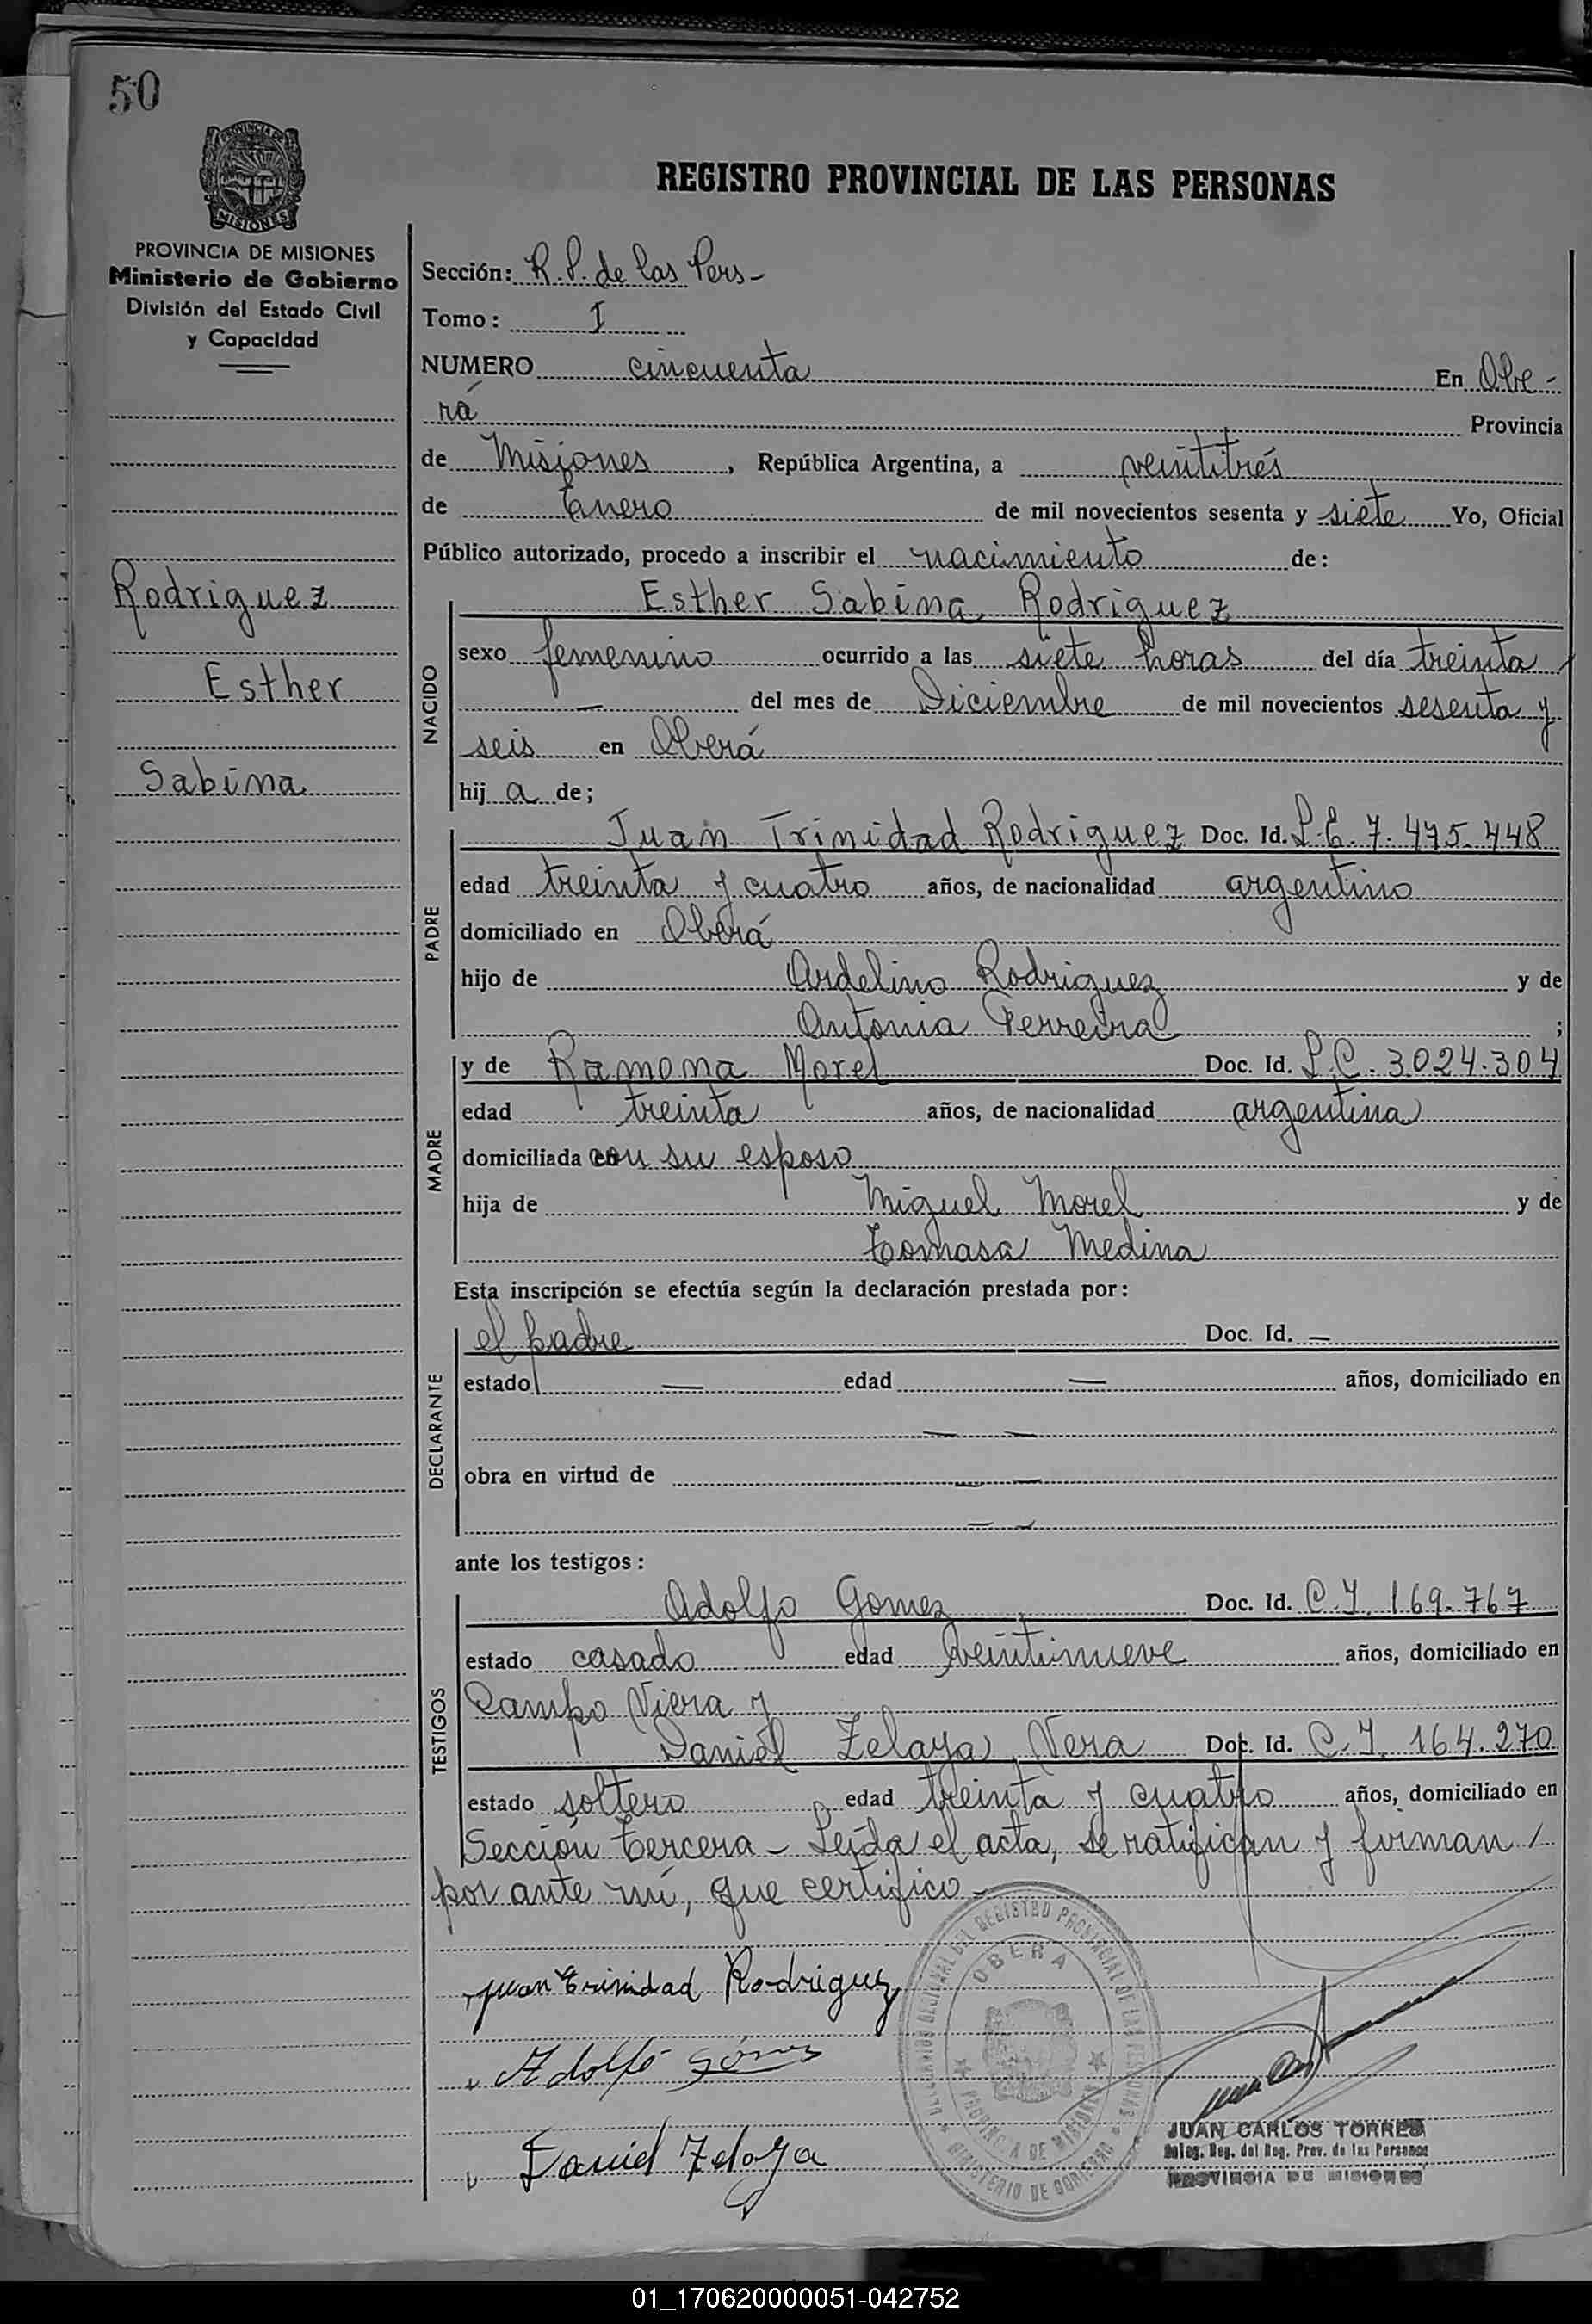 50
PROVINCIA DE
MISIONES
PROVINCIA DE MISIONES
Ministerio de Gobierno
División del Estado Civil
y Capacidad
Rodriguez
Esther
Sabina
REGISTRO PROVINCIAL DE LAS PERSONAS
Sección: R.P. de las Pers-
Tomo: I
NUMERO cincuenta En Obe-
rá Provincia
de Misiones, República Argentina, a veintitrés
de Enero de mil novecientos sesenta y siete Yo, Oficial
Público autorizado, procedo a inscribir el nacimiento de:
NACIDO
Esther Sabina Rodriguez
sexo femenino ocurrido a las siete horas del día treinta
— del mes de Diciembre de mil novecientos sesenta y
seis en Oberá
hij a de;
PADRE
Juan Trinidad Rodriguez Doc. Id. L.E. 7.475.448
edad treinta y cuatro años, de nacionalidad argentino
domiciliado en Oberá
hijo de Ardelino Rodriguez y de
Antonia Ferreira ;
MADRE
y de Ramona Morel Doc. Id. L.C. 3.024.304
edad treinta años, de nacionalidad argentina
domiciliada con su esposo
hija de Miguel Morel y de
Tomasa Medina
Esta inscripción se efectúa según la declaración prestada por:
DECLARANTE
el padre Doc. Id. —
estado — edad — años, domiciliado en
— —
obra en virtud de — —
— —
ante los testigos:
TESTIGOS
Adolfo Gomez Doc. Id. C.I. 169.767
estado casado edad veintinueve años, domiciliado en
Campo Viera y
Daniel Zelaya Vera Doc. Id. C.I. 164.270
estado soltero edad treinta y cuatro años, domiciliado en
Sección tercera - Leída el acta, se ratifican y firman /
por ante mí, que certifico -
Juan Trinidad Rodriguez
Adolfo Gómez
Daniel Zelaya
DELEGACION REGIONAL DEL REGISTRO PROVINCIAL DE LAS PERSONAS
OBERA
PROVINCIA DE MISIONES
MINISTERIO DE GOBIERNO
JUAN CARLOS TORRES
Deleg. Reg. del Reg. Prov. de las Personas
PROVINCIA DE MISIONES
01_170620000051-042752